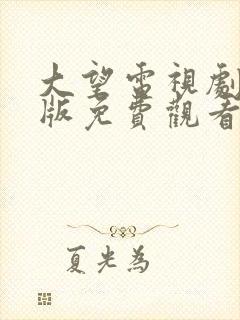 大望雷視劇
版免費觀看
夏光為